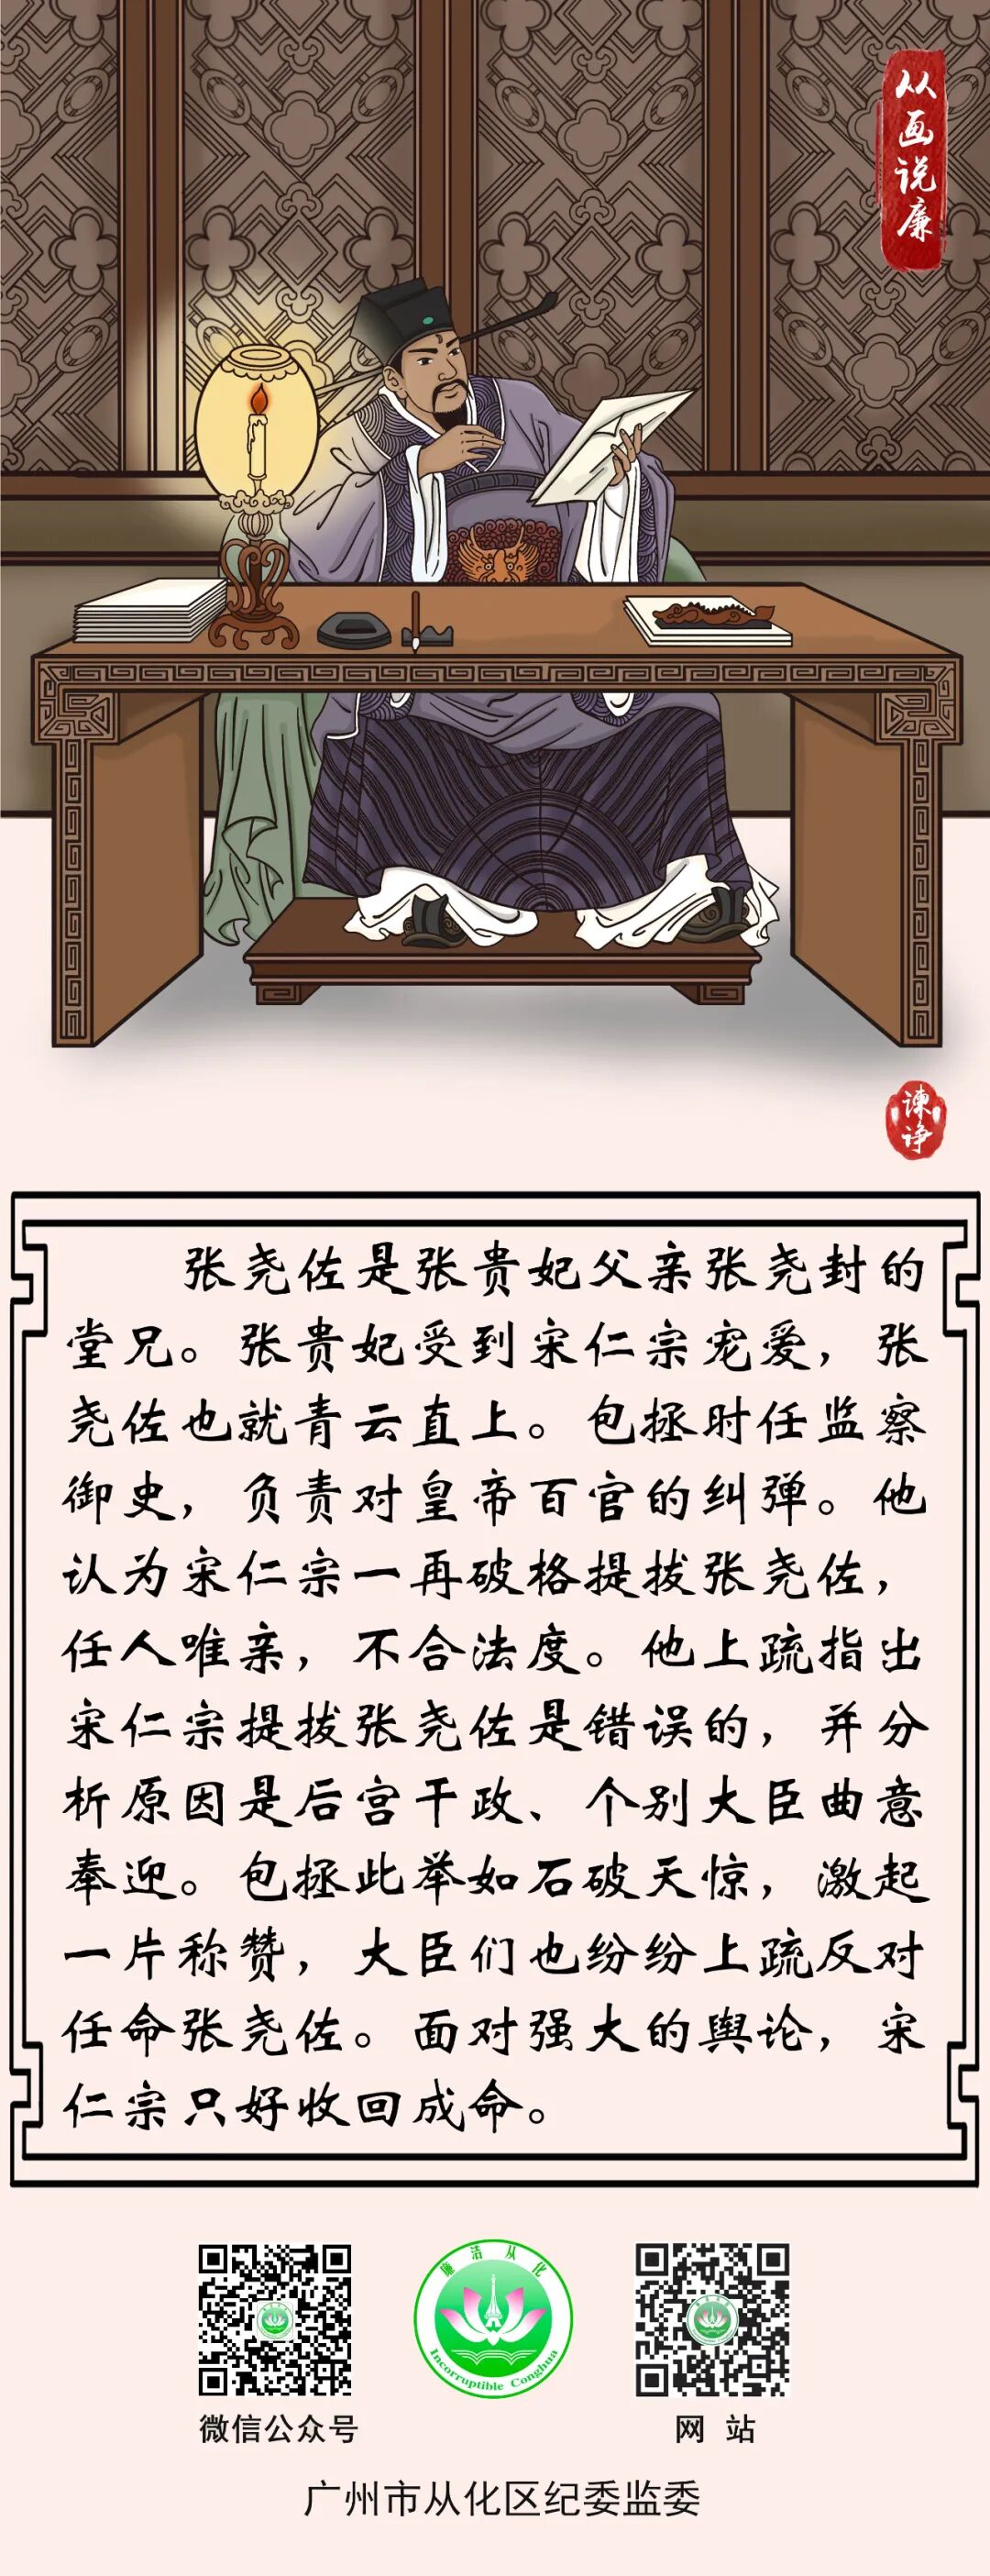 从画说廉
谏诤
张尧佐是张贵妃父亲张尧封的
堂兄。张贵妃受到宋仁宗宠爱，张
尧佐也就青云直上。包拯时任监察
御史，负责对皇帝百官的纠弹。他
认为宋仁宗一再破格提拔张尧佐，
任人唯亲，不合法度。他上疏指出
宋仁宗提拔张尧佐是错误的，并分
析原因是后宫干政、个别大臣曲意
奉迎。包拯此举如石破天惊，激起
一片称赞，大臣们也纷纷上疏反对
任命张尧佐。面对强大的舆论，宋
仁宗只好收回成命。
廉洁从化
Incorruptible Conghua
微信公众号
网 站
广州市从化区纪委监委